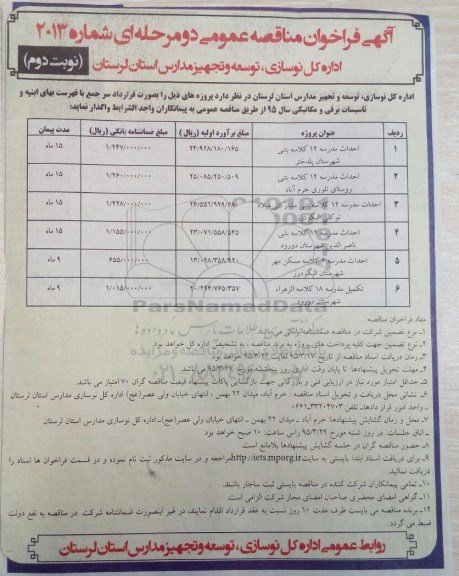 آگهی فراخوان مناقصه عمومی دو مرحله ای شماره ۲۰۱۳
اداره کل نوسازی، توسعه و تجهیز مدارس استان لرستان (نوبت دوم)
اداره کل نوسازی، توسعه و تجهیز مدارس استان لرستان در نظر دارد پروژه های ذیل را بصورت قرارداد سر جمع با فهرست بهای ابنیه و
تاسیسات برقی و مکانیکی سال ۹۵ از طریق مناقصه عمومی به پیمانکاران واجد الشرایط واگذار نماید:
ردیف عنوان پروژه مبلغ برآورد اولیه (ریال) مبلغ ضمانتنامه بانکی (ریال) مدت پیمان
۱ احداث مدرسه ۱۲ کلاسه بتنی شهرستان پلدختر ۲۴/۹۲۸/۱۸۰/۱۶۵ ۱/۲۴۷/۰۰۰/۰۰۰ ۱۵ ماه
۲ احداث مدرسه ۱۲ کلاسه بتنی روستای تلوری خرم آباد ۲۵/۰۸۵/۲۵۰/۵۰۹ ۱/۲۶۰/۰۰۰/۰۰۰ ۱۵ ماه
۳ احداث مدرسه ۱۲ کلاسه بتنی الیگودرز ۱/۲۲۸/۰۰۰/۰۰۰ ۱۵ ماه
۴ احداث مدرسه ۱۲ کلاسه بتنی ناصرالدین شهرستان دورود ۲۳/۰۷۱/۵۵۸/۵۴۵ ۱/۱۵۵/۰۰۰/۰۰۰ ۱۵ ماه
۵ احداث مدرسه ۶ کلاسه مسکن مهر شهرستان الیگودرز ۱۳/۰۹۸/۳۵۸/۹۴۰ ۶۵۵/۰۰۰/۰۰۰ ۹ ماه
۶ تکمیل مدرسه ۱۸ کلاسه الزهراء شهرستان دورود ۲۰/۲۹۴/۷۶۵/۳۵۷ ۱/۰۱۵/۰۰۰/۰۰۰ ۹ ماه
ParsNamadData
مفاد فراخوان مناقصه
۱ـ نوع تضمین شرکت در مناقصه ضمانتنامه بانکی می باشد
۲ـ نوع تضمین جهت کلیه پرداخت های پروژه به برنده مناقصه، به تشخیص اداره کل خواهد بود.
۳ـ زمان دریافت اسناد مناقصه از تاریخ ۹۵/۳/۱۷ لغایت ۹۵/۳/۲۲ خواهد بود
۴ـ مهلت تحویل پیشنهادها: تا پایان وقت اداری روز پنجشنبه مورخ ۹۵/۳/۲۷ می باشد.
۵ـ حداقل امتیاز مورد نیاز در ارزیابی فنی و بازرگانی جهت بازگشایی پاکات پیشنهاد قیمت مناقصه گران ۷۰ امتیاز می باشد.
۶ـ نشانی محل دریافت و تحویل اسناد مناقصه: خرم آباد، میدان ۲۲ بهمن، انتهای خیابان ولی عصر(عج) اداره کل نوسازی مدارس استان لرستان
ـ واحد امور قرار دادها. تلفن ۳۳۲۰۴۷۰۳ـ۰۶۶
۷ـ محل و زمان گشایش پیشنهادها: خرم آباد ـ میدان ۲۲ بهمن ـ انتهای خیابان ولی عصر(عج) ـ اداره کل نوسازی مدارس استان لرستان
ـ اتاق جلسات، در روز شنبه مورخ ۹۵/۳/۲۹ راس ساعت: ۱۰ صبح خواهد بود
۸ـ حضور مناقصه گران در جلسه گشایش پیشنهادها بلامانع است
۹ـ برای دریافت اسناد ابتدا بایستی به سایت http://iets.mporg.ir مراجعه و در سایت مذکور ثبت نام نموده و در قسمت فراخوان ها اسناد را
دریافت نمائید.
۱۰ـ تمامی پیمانکاران شرکت کننده در مناقصه بایستی ثبت ساجار باشند.
۱۱ـ گواهی امضای محضری صاحبان امضای مجاز شرکت الزامی است.
۱۲ـ برنده مناقصه می بایست ظرف مدت ۱۰ روز نسبت به عقد قرارداد اقدام نمایند، در غیر اینصورت ضمانتنامه شرکت در مناقصه به نفع دولت
ضبط می گردد.
روابط عمومی اداره کل نوسازی، توسعه و تجهیز مدارس استان لرستان